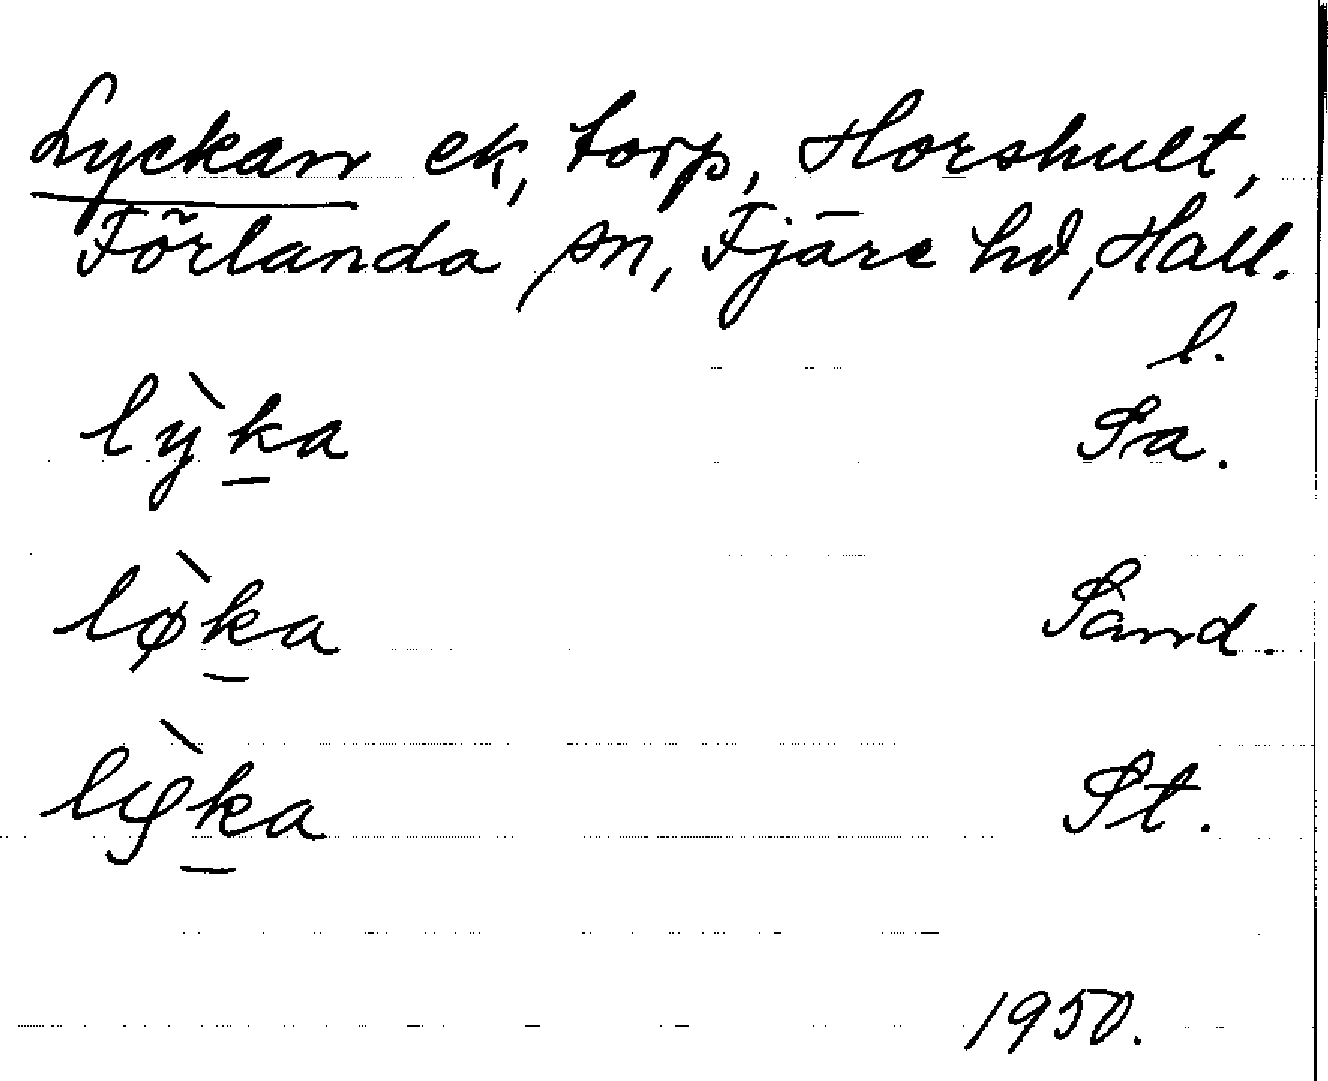 Lyckan ek, torp, Horshult,
Förlanda sn, Fjäre hd, Hall.
l.
lỳka Sa.
lø̀ka Sand.
lỳka St.
1950.